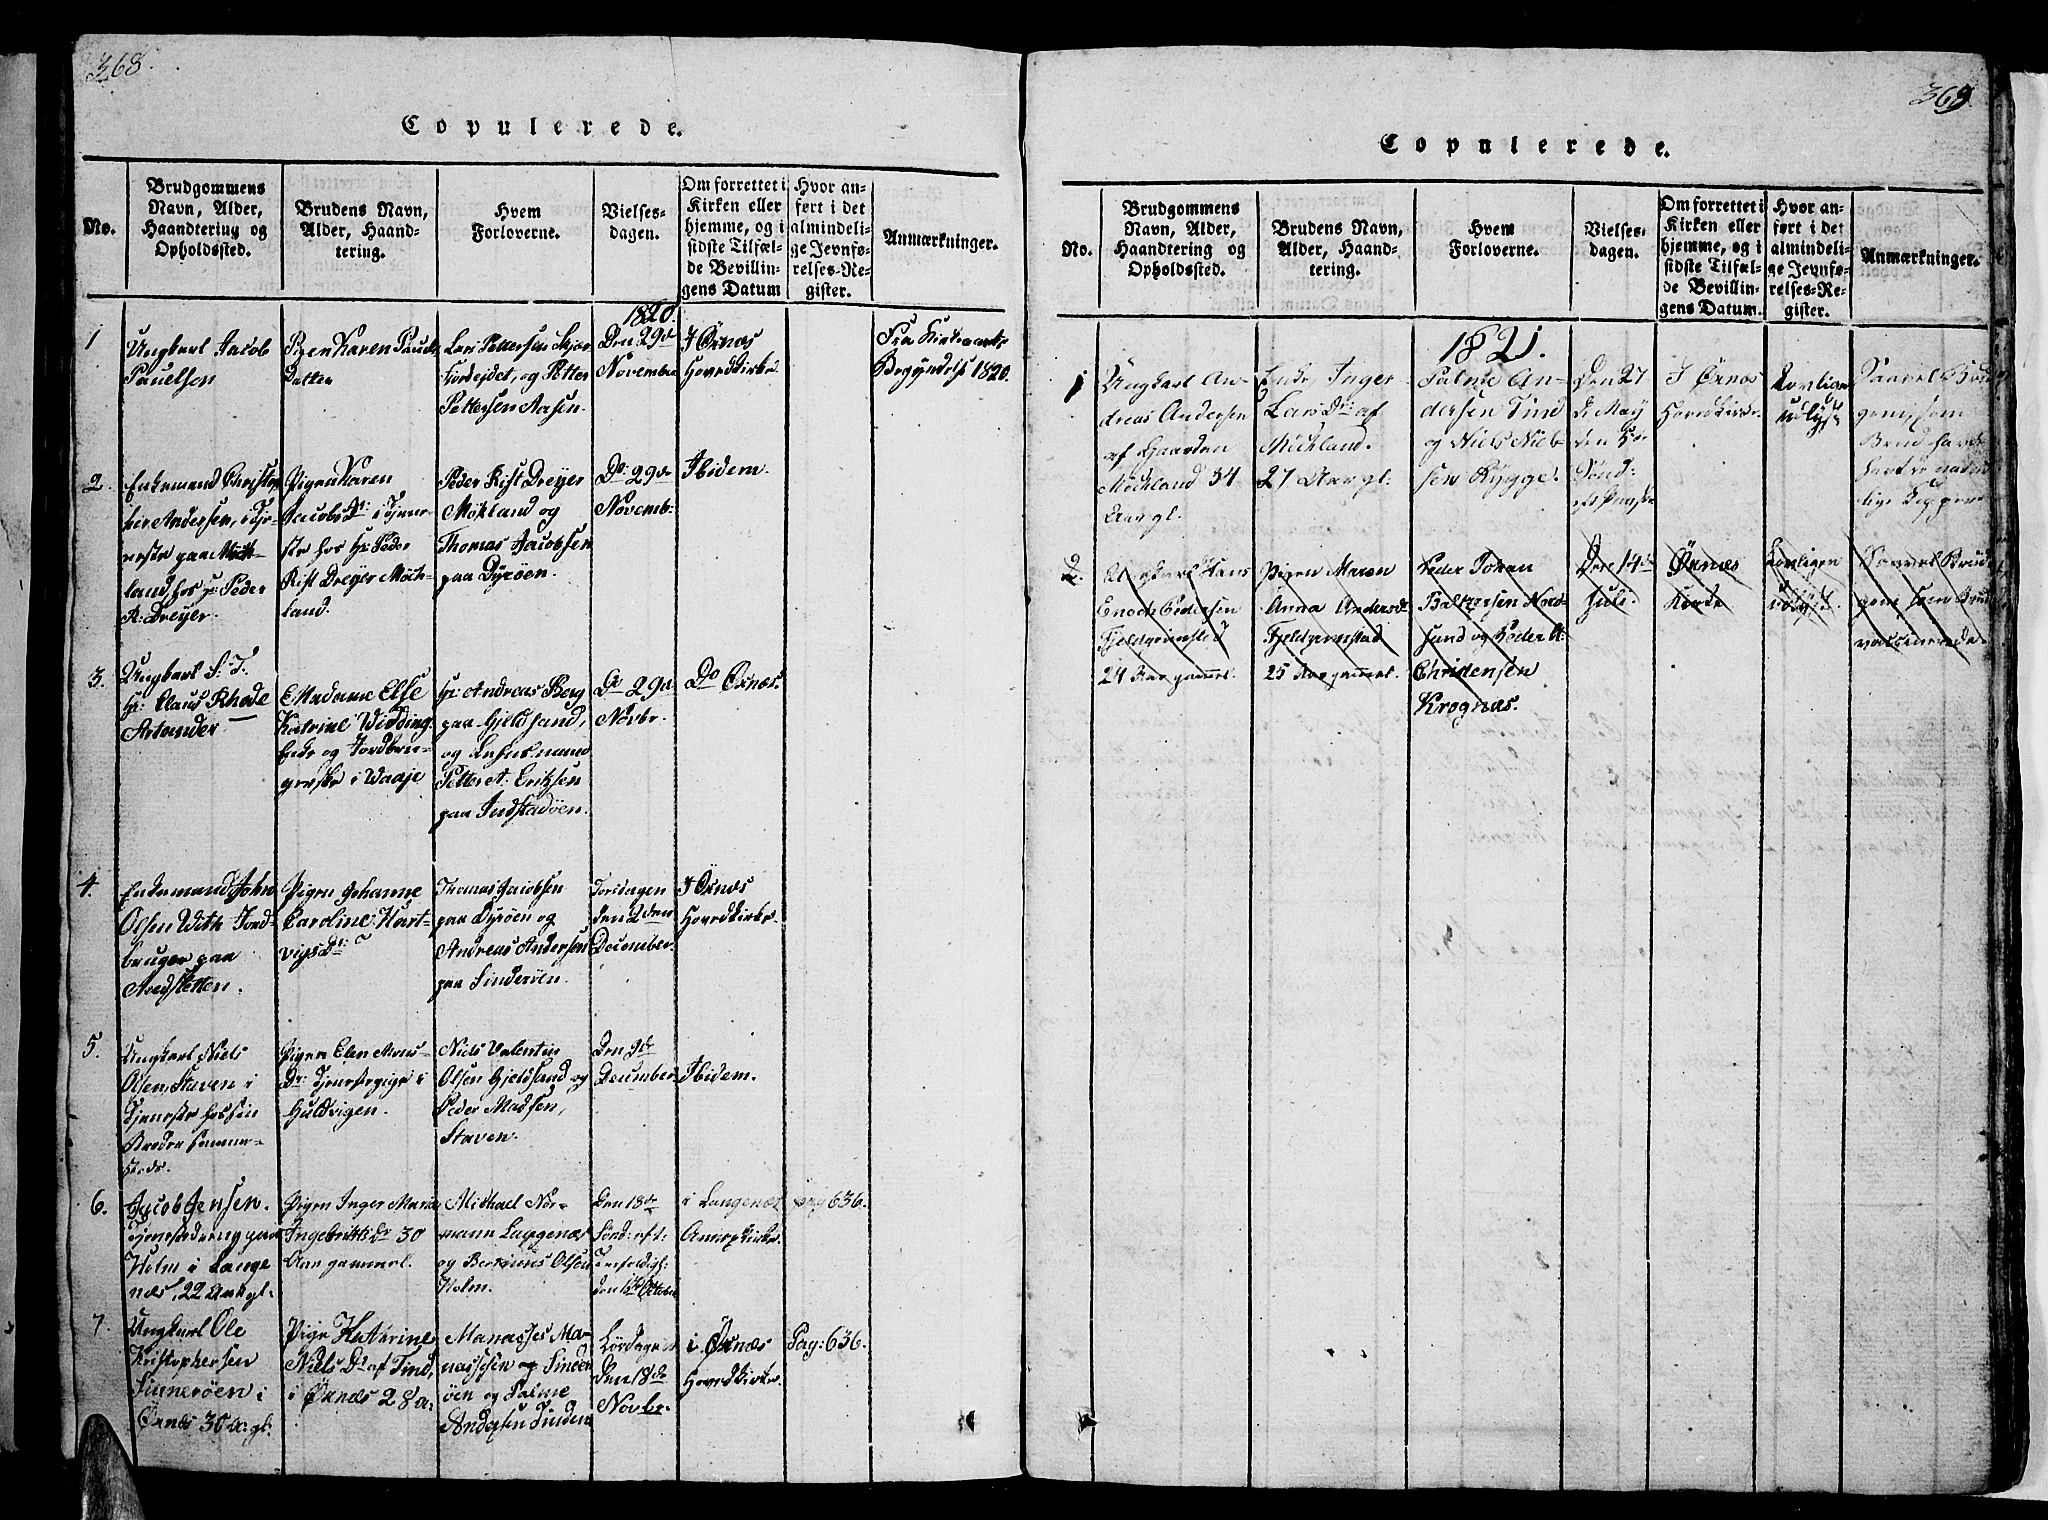 368.
Copulerede.
No.
Brudgommens
Navn, Alder,
Haandtering og
Opholdssted.
Brudens Navn,
Alder, Haand-
tering.
Hvem
Forloverne.
Vielses-
dagen.
Om forrettet i
Kirken eller
hjemme, og i
sidste Tilfæl-
de Bevillin-
gens Datum
Hvor an-
ført i det
almindeli-
ge Jevnfø-
relses-Re-
gister.
Anmærkninger.
1820.
1
Ungkarl Jacob
Pauelsen
Pigen Karen Pauels
Datter
Lars Pettersen
og Petter
Pettersen Aasen.
Den 29de
November
I Öxnæs
Hovedkirke
Fra Kirkeaarets
Begyndelse 1820.
2.
Enkemand Christo-
pher Andersen, i Tje-
neste paa Mich-
land, hos Hr Peder
R: Dreyer.
Pigen Karen
Jacobs Dr: i Tjene-
ste hos Hr: Peder
Rist Dreyer Mich-
land.
Peder Rist Dreyer
Mökland og
Thomas Jacobsen
paa Dyröen.
Do: 29de
Novemb:
Ibidem.
3.
Ungkarl S: T:
Hr: Claus Rhode
Artander
Madame Else
Katrine Widding
Enke og Jordbru-
gerske i Waaje
Hr: Andreas Berg
paa Gjeldsand,
og Lehnsmand
Petter A. Erichsen
paa Indstadöen.
29de
Novbr.
Do Öxnæs.
4.
Enkemand John
Olsen With Jord-
bruger paa
Avedsletten.
Pigen Johanne
Caroline Hart-
vigs Dr:
Thomas Jacobsen
paa Dyröen og
Andreas Andersen
paa Sinderöen.
Torsdagen
den 2den
December.
I Öxnæs
Hovedkirke.
5.
Ungkarl Niels
Olsen Staven i
Tjeneste hos sin
Broder sammen-
steds.
Pigen Elen Mons-
Dr: Tjenestepige i
Huldvigen.
Niels Valentin
Olsen Gjeldsand og
Peder Madsen,
Staven.
Den 9de
December
Ibidem.
6.
Jacob Jensen.
Tjenestedreng paa
Holm i Lange
næs, 22 Aar gl.
Pigen Inger Maria
Ingebrittsdr 30
Aar gammel.
Michael Nor-
mann Langenæs
og Olsen
Holm.
Den 18de
Sönd: eft:
Trefoldigh:
den October
i Langenæs
Annexkirke.
pag 636.
7.
Ungkarl Ole
Kristophersen
Sinneröen i
Öxnes 30 a: gl:
Pige Kathrine
Niels Dr af Tind,
i Öxnæs 28 a:
Manasses Ma-
nassesen og Sinder
öen og Salme
Andersen Tinden
Lördagen
Den 18de
Novbr.
i Öxnæs
Hovedkirke.
Pag: 636.
369.
Copulerede.
No.
Brudgommens
Navn, Alder,
Haandtering og
Opholdssted.
Brudens Navn,
Alder, Haand-
tering.
Hvem
Forloverne.
Vielses-
dagen.
Om forrettet i
Kirken eller
hjemme, og i
sidste Tilfæl-
de Bevillin-
gens Datum.
Hvor an-
ført i det
almindeli-
ge Jevnfø-
relses-Re-
gister.
Anmærkninger.
1821.
1
Ungkarl An-
dreas Andersen
af Gaarden
Mickland 34
Aar gl.
Enke Inger
Lars Dr: af
Mickland.
27 Aar gl:
Salme An-
dersen Tind
og Niels Niel-
sen Rygge.
Den 27
de May
den 5te
Sönd:
eft Paaske
I Öxnæs
Hovedkirke.
Lovligen
udlyst
Saavel Brud
gom som
Brud havde
havt de natur-
lige Kopper
2.
Ungkarl Hans
Enoch Pedersen
Fjeldgrimsted
24 Aar gammel.
Pigen Maren
Anna Andersdr
Fjeldgrimstad
25 Aar gammel.
Peder Johan
Baltzersen Nord-
sand og Peder A:
Christensen
Krognæs.
Den 14de
Juli.
Öxnæs
Kirke
Lovligen
udlyst.
Saavel Brud
gom som Brud
vaccinerede.